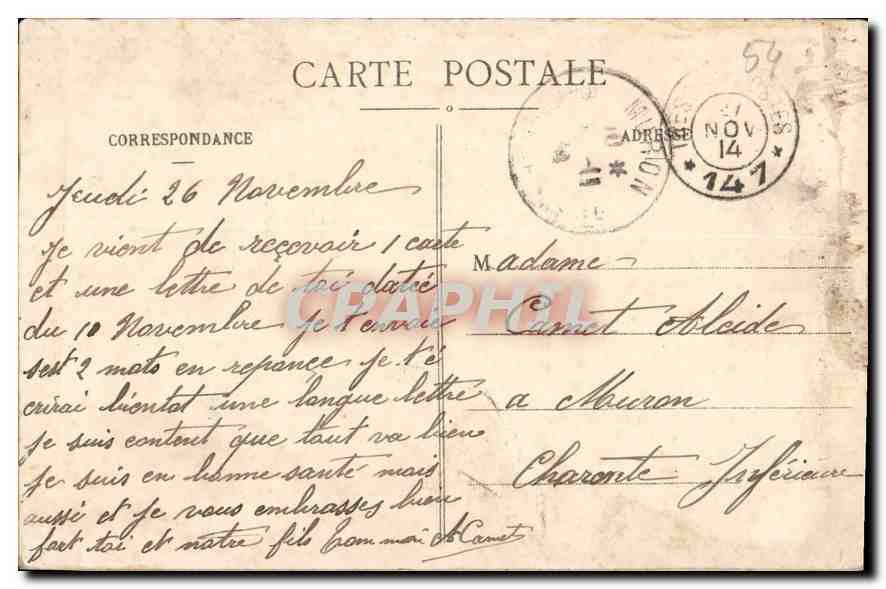 54
CARTE POSTALE
CORRESPONDANCE
ADRESSE
MURON
NOV
14
* 147 *
Jeudi 26 Novembre
Je vient de reçevoir 1 carte
et une lettre de toi datée
du 10 Novembre je t'envoie
sest 2 mots en reponce je t'é
crirai bientot une longue lettre
Je suis content que tout va bien
Je suis en bonne santé mais
aussi et je vous embrasses bien
fort toi et notre fils ton moi ACamet
Madame
Camet Alcide
a Muron
Charente Inférieure
CPAPHIL